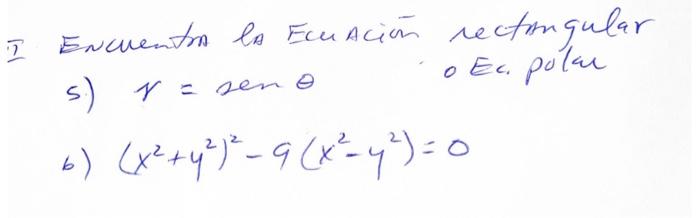 I Encuentra la Ecuación rectangular
o Ec. polar
5) r = sen θ
6) (x²+y²)² - 9(x²-y²) = 0